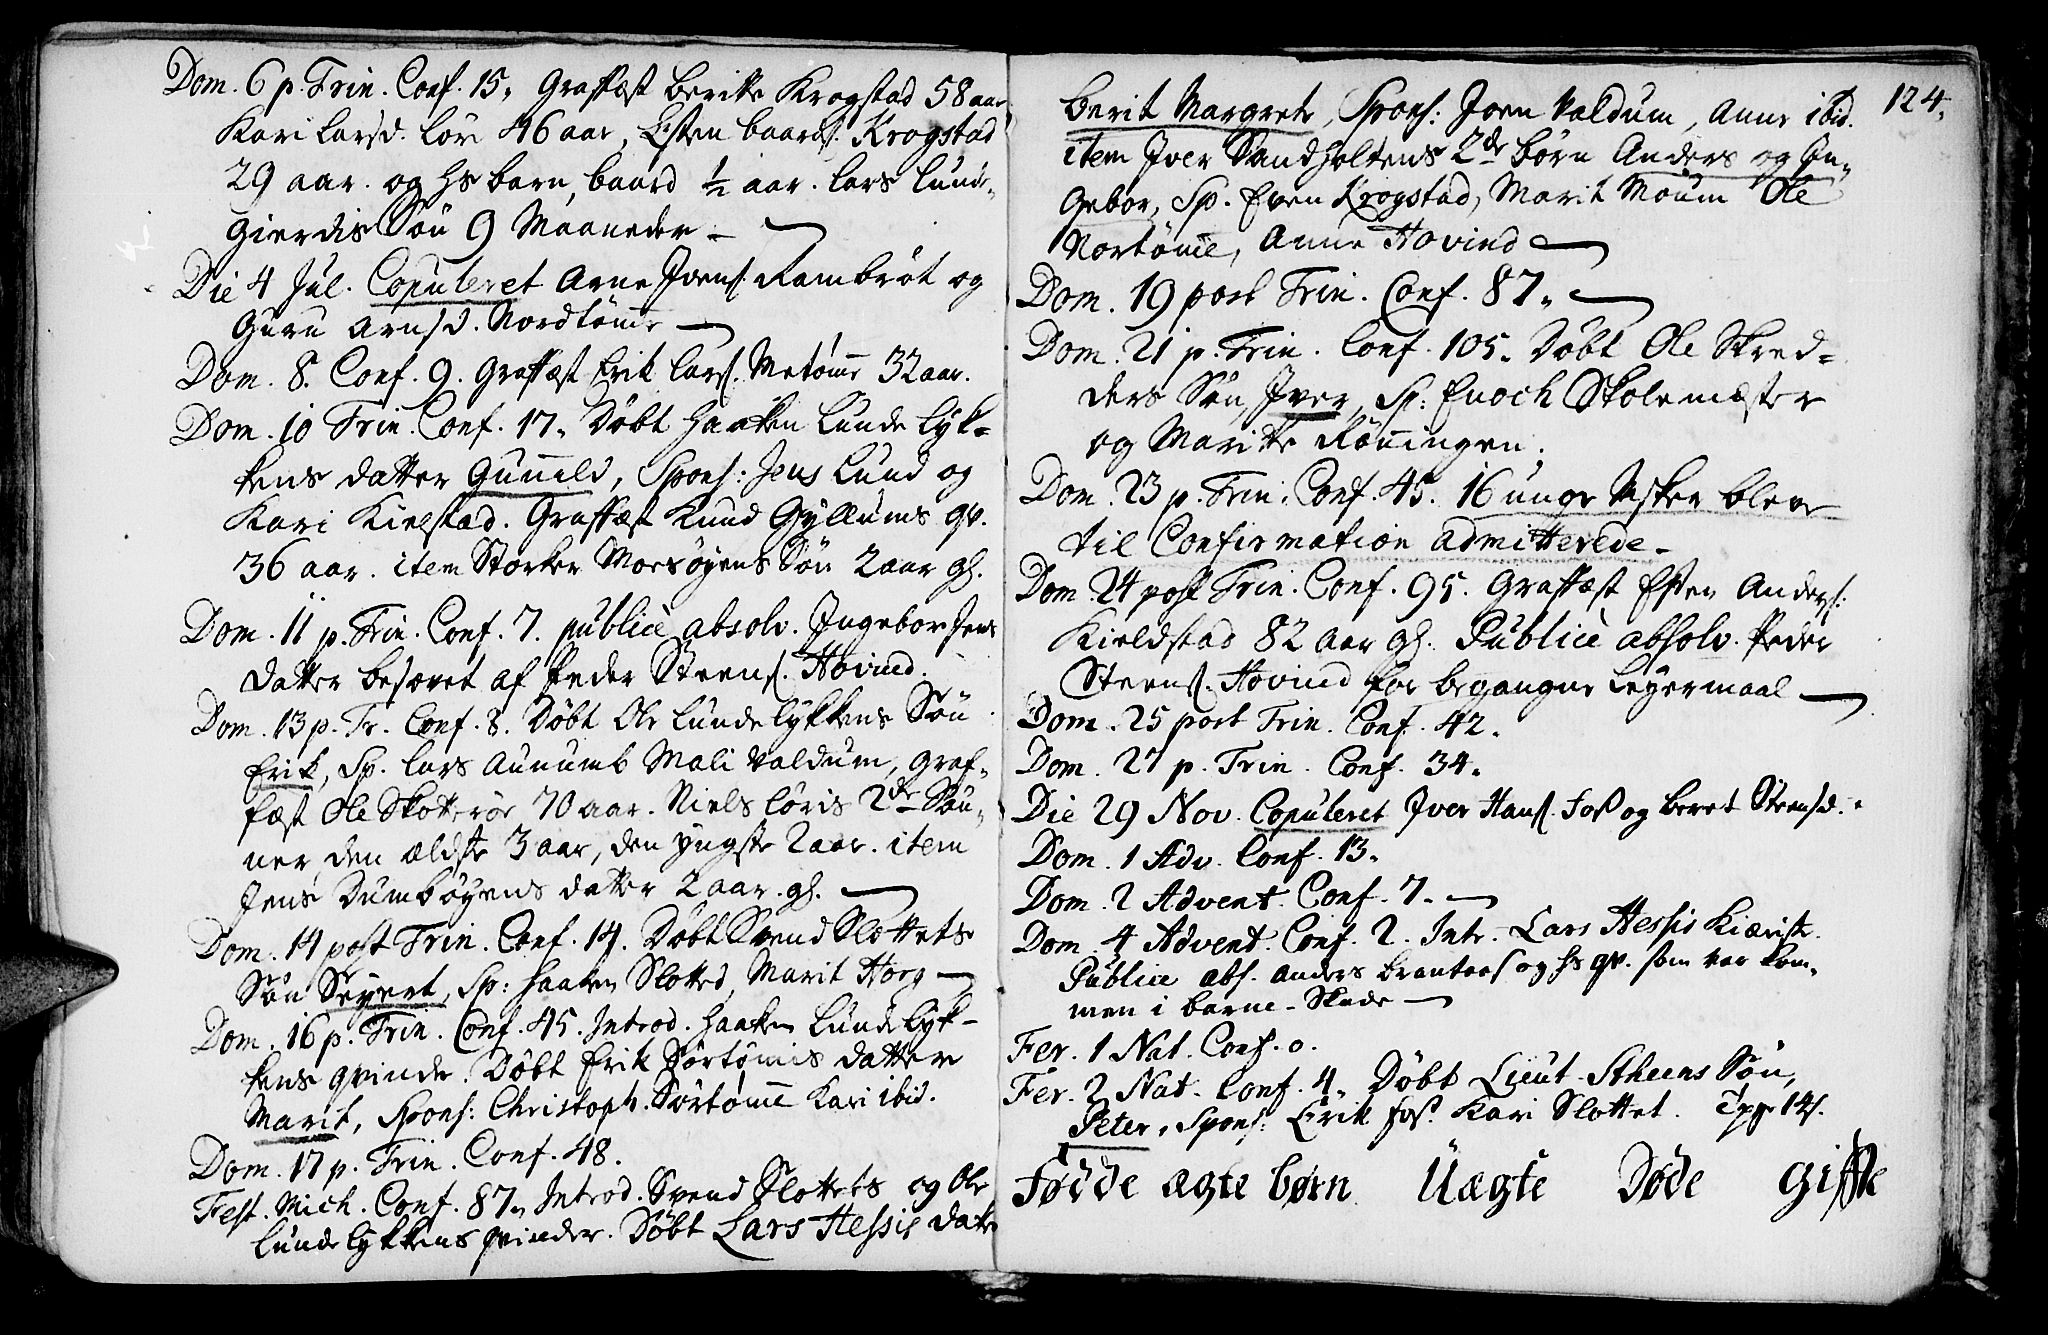 Dom. 6 p. Trin. Conf. 15. Graffæst Beritte Krogstad 58 aar
Kari Larsd. Löe 46 aar, Esten Baards. Krogstad
29 aar. og hs barn, Baard ½ aar. Lars Lund-
Gierdis Sön 9 Maaneder -
Die 4 Jul. Copuleret Arne Joens. Rambröt og
Guru Arnsd. Nordtömme
Dom. 8. Conf. 9. Graffæst Erik Lars. Metömme 32 aar.
Dom. 10 Trin. Conf. 17. Döbt Haaken Lunde Lyk-
kens datter Gunild, Spons: Jens Lund og
Kari Kielstad. Graffæst Knud Gyllums qv.
36 aar. item Storker Morsöyens Sön 2 aar gl.
Dom. 11 p. Trin. Conf. 7. publicè absolv. Ingebor Jens
datter besovet af Peder Steens. Hovind.
Dom. 13 p. Tr. Conf. 8. Döbt Ole Lundelykkens Sön
Erik, Sp. Lars Aunumb Mali Valdum, Graf-
fæst Ole Skotteröe 70 aar. Niels Löris 2de Sön-
ner, den ældste 3 aar, den yngste 2 aar. item
Jens Dumböyens datter 2 aar. gl.
Dom. 14 post Trin. Conf. 14. Döbt Svend Slottets
Sön Seyert, Sp: Haaken Slotted, Marit Horg
Dom. 16 p. Trin. Conf. 45. Introd. Haaken Lundelyk-
kens qvinde. Döbt Erik Sörtömis datter
Marit, Spons: Christoph. Sörtömme Kari ibid.
Dom. 17 p. Trin. Conf. 48.
Fest. Mich. Conf. 87. Introd. Svend Slottets og Ole
Lundelykkens qvinder. Döbt Lars Hessis dater
124.
Berit Margrete, Spons: Joen Valdum, Anne ibid.
item Iver Sandholtens 2de börn Anders og In-
gebor, Sp. Even Krogstad, Marit Moum Ole
Nortömme, Anne Hovind
Dom. 19 post Trin. Conf. 87.
Dom. 21 p. Trin. Conf. 105. Döbt Ole Skred-
ders Sön, Iver, Sp: Enoch Skolemester
og Maritte Rönningen.
Dom. 23 p. Trin. Conf. 45. 16 unge Nsker blev
til Confirmation admitterede.
Dom. 24 post Trin. Conf. 95. Graffæst Esten Anders:
Kieldstad 82 aar gl. Publicè absolv. Peder
Steens. Hovind for begangne Leyermaal
Dom. 25 post Trin. Conf. 42.
Dom. 27 p. Trin. Conf. 34.
Die 29 Nov. Copuleret Iver Hans. Foss og Beret Steensd.
Dom. 1 Adv. Conf. 13.
Dom. 2 Advent. Conf. 7.
Dom. 4 Advent. Conf. 2. Intr. Lars Hessis Kiæriste.
Publice abs. Anders og hs qv. som var kom-
men i barne-Skade
Fer. 1 Nat. Conf. 0.
Fer. 2 Nat. Conf. 4. Döbt Lieut. Stheens Sön,
Peter, Spons: Erik Foss. Kari Slottet.
Födde ægte börn Uægte Döde Gifte